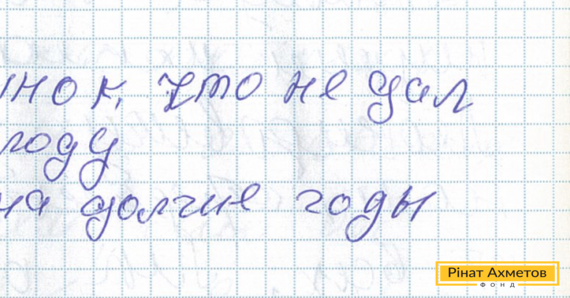 нок, что не дал
году
на долгие годы
Рінат Ахметов
ФОНД